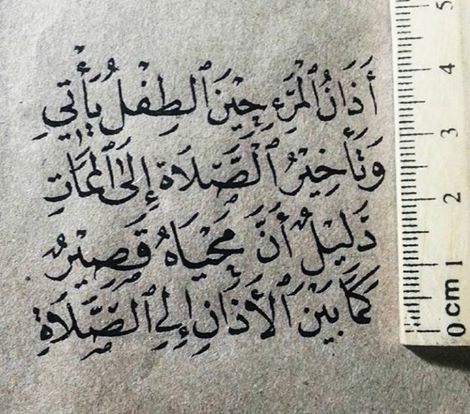 أَذَانُ ٱلْمَرْءِ حِيْنَ ٱلطِفْلُ يَأْتِي
وَتَأْخِيْرُ ٱلصَّلَاةِ إِلَى ٱلْمَمَاتِ
دَلِيْلُ أَنَّ مَحْيَاهُ قَصِيْرٌ
كَمَا بَيْنَ ٱلْأَذَانِ إِلَى ٱلصَّلَاةِ
5
4
3
2
1
0 cm